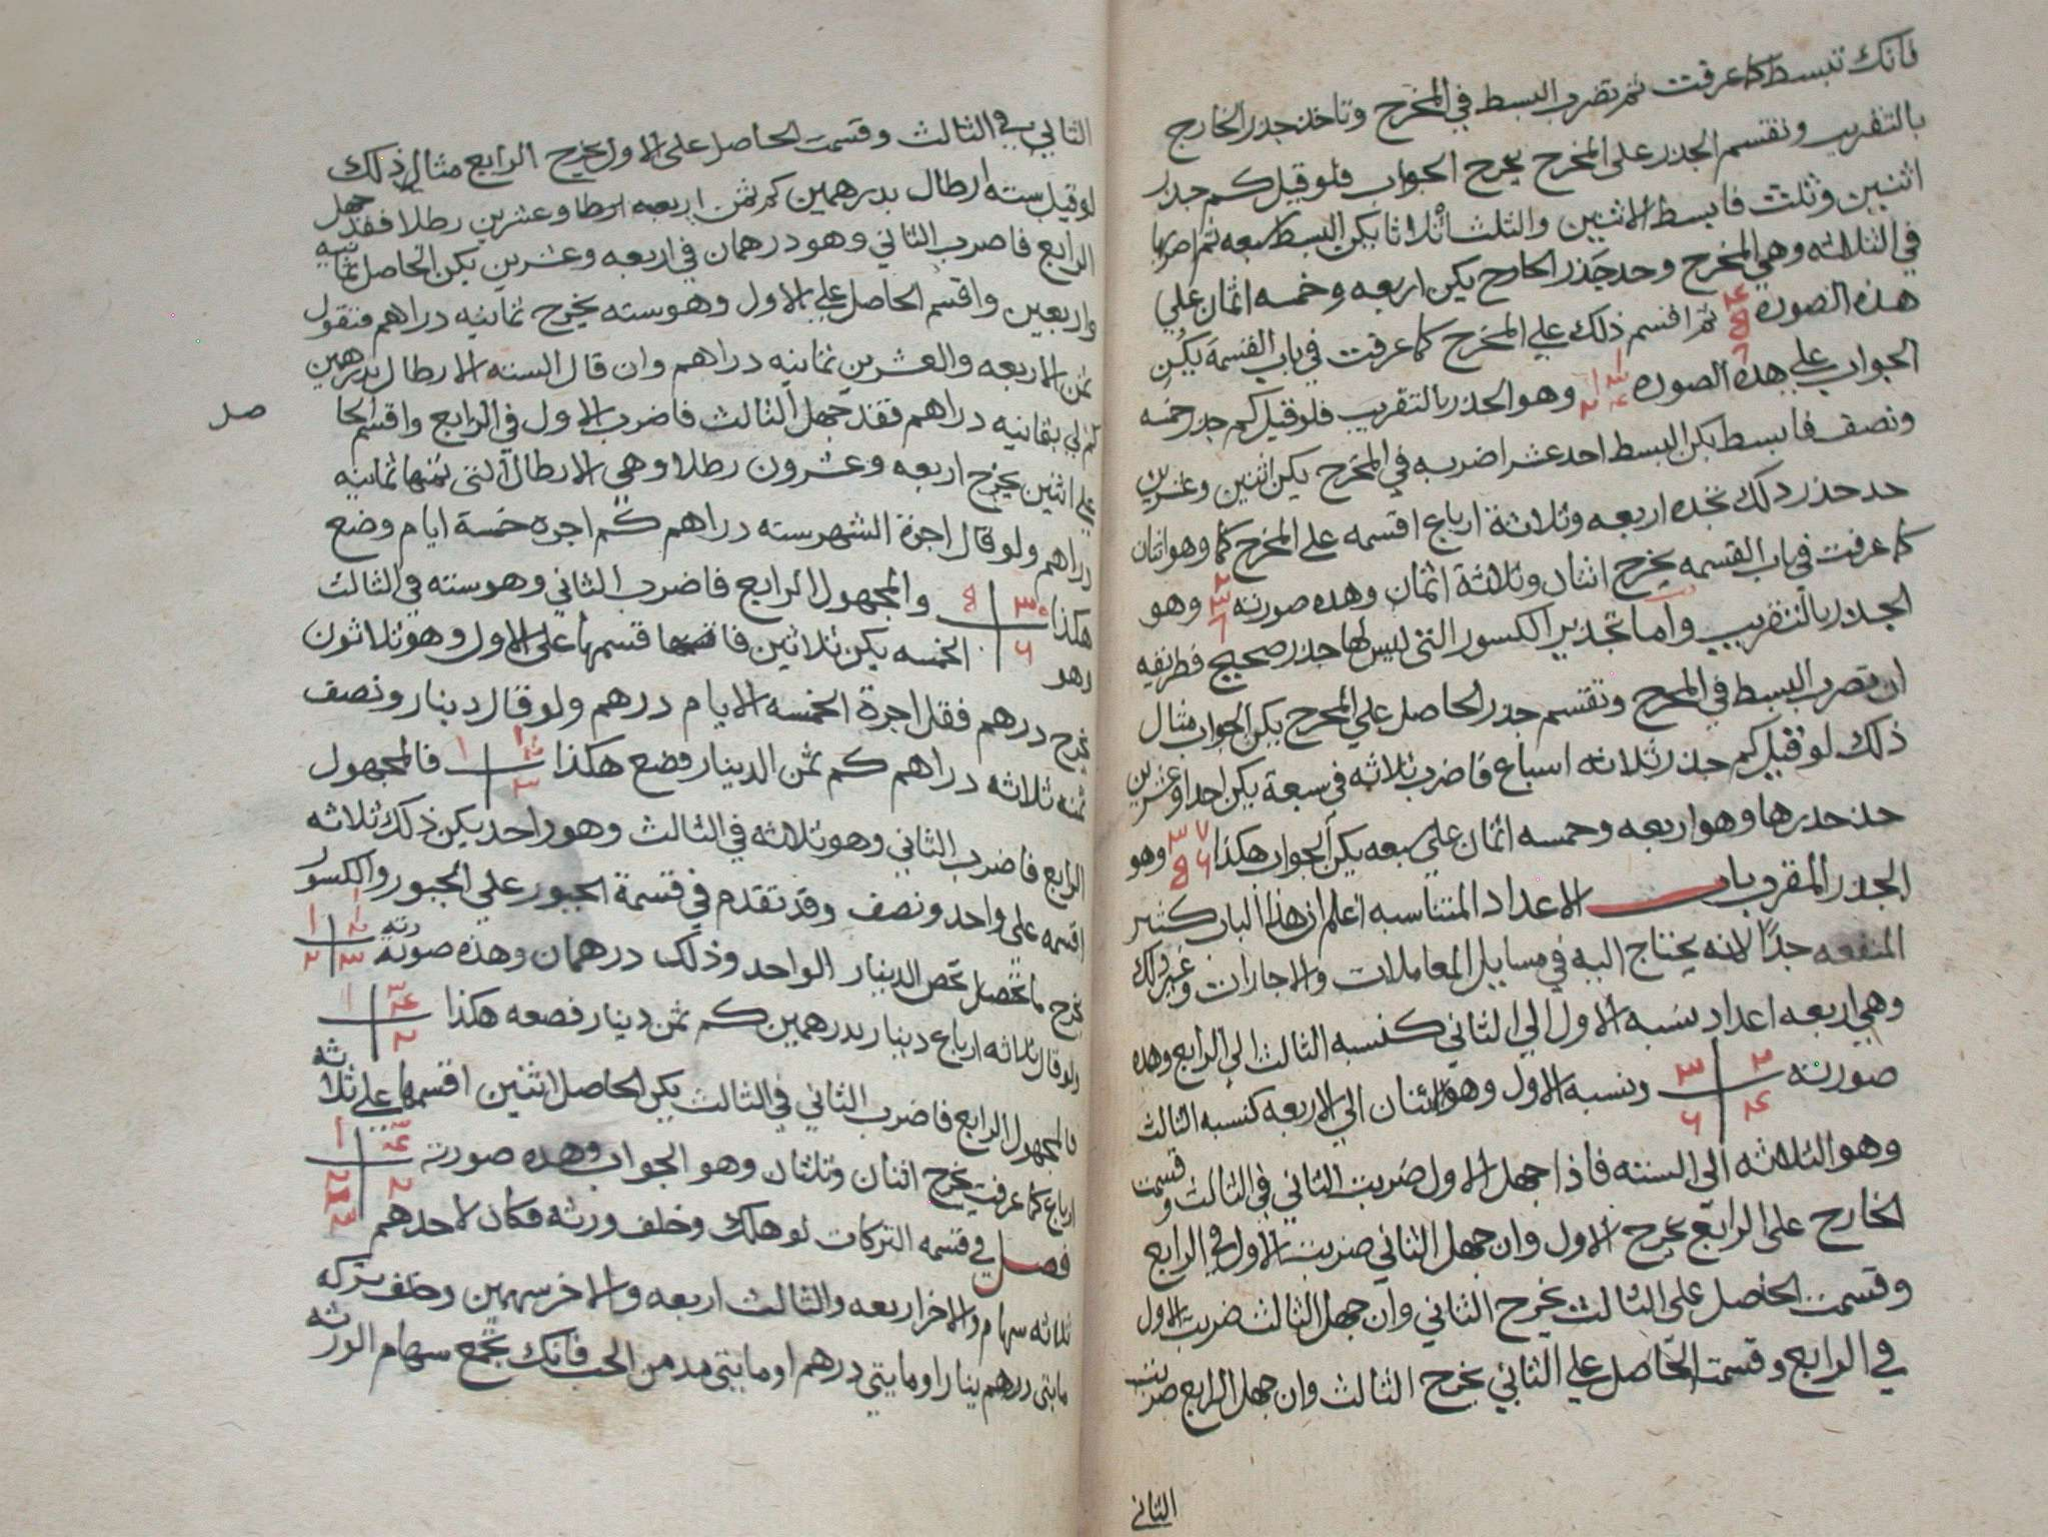 فانك تبسط كما عرفت ثم تضرب البسط في المخرج وتاخذ جذر الخارج
بالتقريب وتقسم الجذر على المخرج يخرج الجواب فلو قيل كم جذر
اثنين وثلث فابسط الاثنين والثلث اثلاثا يكن البسط سبعه ثم اضربها
في الثلاثه وهي المخرج وخد جذر الخارج يكن اربعه وخمسه اثمان علي
هذه الصوره ثم اقسم ذلك علي المخرج كما عرفت في باب القسمة يكن
الجواب علي هذه الصوره وهو الجذر بالتقريب فلو قيل كم جذر خمسه
ونصف فابسط يكن البسط احد عشر اضربه في المخرج يكن اثنين وعشرين
خد جذر ذلك تجده اربعه وثلاثة ارباع اقسمه على المخرج كما وهو اثنان
كما عرفت في باب القسمه يخرج اثنان وثلاثة اثمان وهذه صورته ٢ ٣ ٨ وهو
الجذر بالتقريب واما تجذير الكسور التي ليس لها جذر صحيح فطريقه
ان تضرب البسط في المخرج وتقسم جذر الحاصل علي المخرج يكن الجواب مثال
ذلك لو قيل كم جذر ثلاثه اسباع فاضرب ثلاثه في سبعة يكن احدا وعشرين
خذ جذرها وهو اربعه وخمسه اثمان علي سبعه يكن الجواب هكذا وهو
الجذر المقرب باب الاعداد المتناسبه اعلم ان هذا الباب كثير
المنفعه جدا لانه يحتاج اليه في مسايل المعاملات والاجارات وغير ذلك
وهي اربعه اعداد نسبه الاول الي الثاني كنسبه الثالث الي الرابع وهذه
صورته ٢ ٣ ۴ ۶ ونسبه الاول وهو اثنان الي الاربعه كنسبه الثالث
وهو الثلاثه الي السته فاذا جهل الاول ضربت الثاني في الثالث وقسمت
الخارج على الرابع يخرج الاول وان جهل الثاني ضربت الاول في الرابع
وقسمت الحاصل على الثالث يخرج الثاني وان جهل الثالث ضربت الاول
في الرابع وقسمت الحاصل علي الثاني يخرج الثالث وان جهل الرابع ضربت
الثاني
الثاني في الثالث وقسمت الحاصل على الاول يخرج الرابع مثال ذلك
لو قيل سته ارطال بدرهمين كم ثمن اربعه وعشرين رطلا فقد جهل
الرابع فاضرب الثاني وهو درهمان في اربعه وعشرين يكن الحاصل ثمانيه
واربعين واقسم الحاصل علي الاول وهو سته يخرج ثمانيه دراهم فنقول
ثمن الاربعه والعشرين ثمانيه دراهم وان قال السته الارطال بدرهمين
كم لي بثمانيه دراهم فقد جهل الثالث فاضرب الاول في الرابع واقسم الحا
صل
علي اثنين يخرج اربعه وعشرون رطلا وهي الارطال التي ثمنها ثمانيه
دراهم ولو قال اجرة الشهر سته دراهم كم اجرة خمسة ايام وضع
هكذا ٣٠ ۵ ۶ والمجهول الرابع فاضرب الثاني وهو سته في الثالث
وهو الخمسه يكن ثلاثين فاقسمها على الاول وهو ثلاثون
يخرج درهم فقل اجرة الخمسه الايام درهم ولو قال دينار ونصف
ثمنه ثلاثه دراهم كم ثمن الدينار فضع هكذا فالمجهول
الرابع فاضرب الثاني وهو ثلاثه في الثالث وهو واحد يكن ذلك ثلاثه
اقسمه علي واحد ونصف وقد تقدم في قسمة الجبور علي الجبور والكسور
يخرج ما تحصل يخص الدينار الواحد وذلك درهمان وهذه صورته
ولو قال ثلاثه ارباع دينار بدرهمين كم ثمن دينار فضعه هكذا
فالمجهول الرابع فاضرب الثاني في الثالث يكن الحاصل اثنين اقسمها علي ثلاثه
ارباع كما عرفت يخرج اثنان وثلثان وهو الجواب وهذه صورته
فصل في قسمه التركات لو هلك وخلف ورثه فكان لاحدهم
ثلاثه سهام والاخر اربعه والثالث اربعه والاخر سهمين وخلف تركه
مايتي دينارا او مايتي درهم او مايتي مد من الحب فانك تجمع سهام الورثه